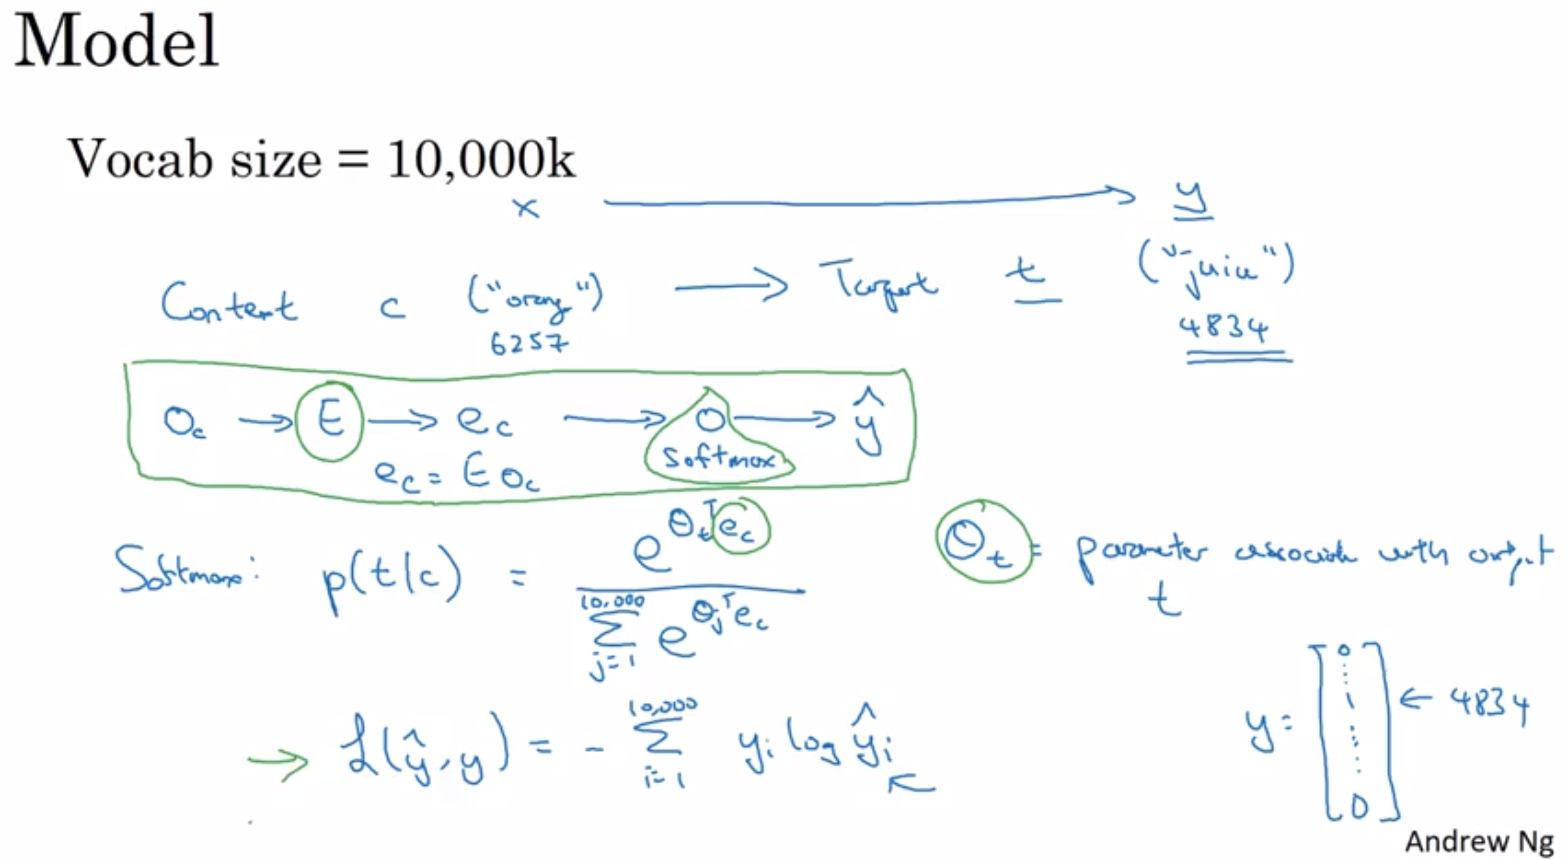 Model
Vocab size = 10,000k
x → y
Content c ("orange") → Target t ("juice")
6257 4834
O_c → E → e_c → o → ŷ
Softmax
e_c = E O_c
Softmax: p(t|c) = e^(θ_t^T e_c) / Σ_{j=1}^{10,000} e^(θ_j^T e_c)
θ_t = parameter associate with output t
ℒ(ŷ, y) = - Σ_{i=1}^{10,000} y_i log ŷ_i
y = [0 ⋮ 1 ⋮ 0] ← 4834
Andrew Ng